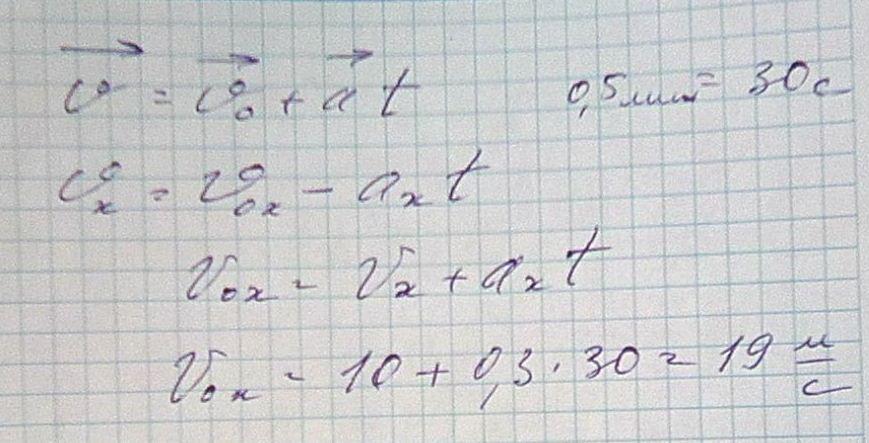 v⃗ = v⃗₀ + a⃗ t    0,5 мин = 30 с
vₓ = v₀ₓ − aₓ t
v₀ₓ = vₓ + aₓ t
v₀ₓ = 10 + 0,3 · 30 = 19 м/с